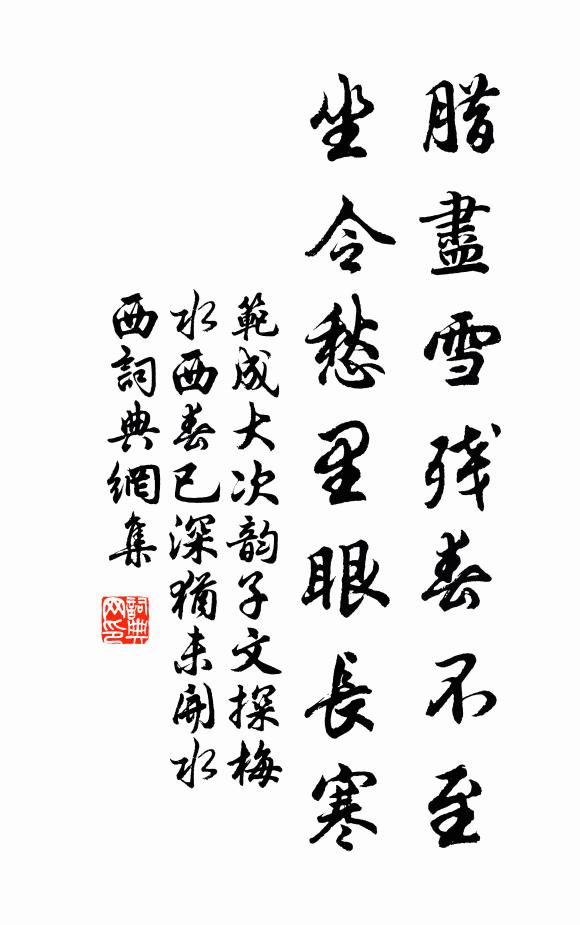 腊盡雪残春不至
坐令愁里眼長寒
範成大次韵子文探梅
水西春已深猶未開水
西詞典網集
詞典网印